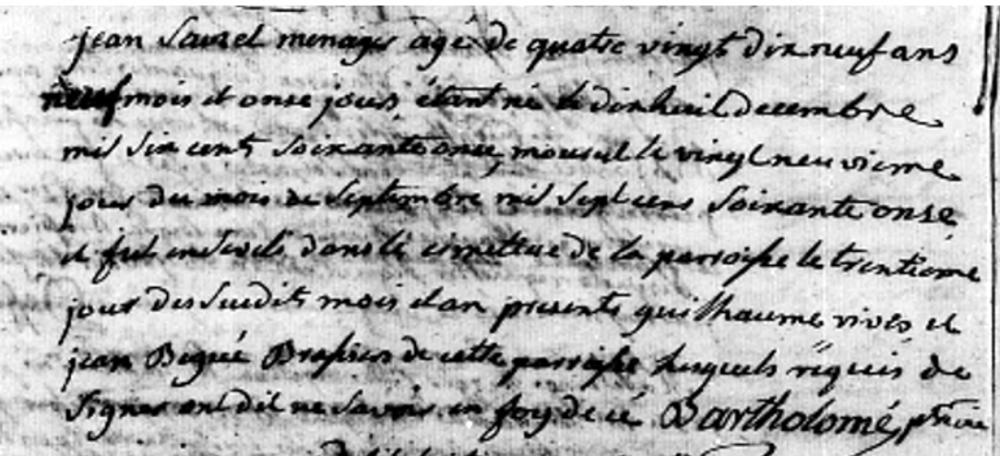 jean Saurel menager agé de quatre vingt dix neuf ans
neuf mois et onze jours étant né le dixhuit decembre
mil six cents soixante onze, mourut le vingt neuvieme
jour du mois de septembre mil sept cens soixante onse
et fut enseveli dans le cimettiere de la parroisse le trentieme
jour des susdits mois et an presents guilhaume vives et
jean Begué Brassiers de cette parroisse lesquels requis de
signer ont dit ne savoir en foy de ce Bartholomé,